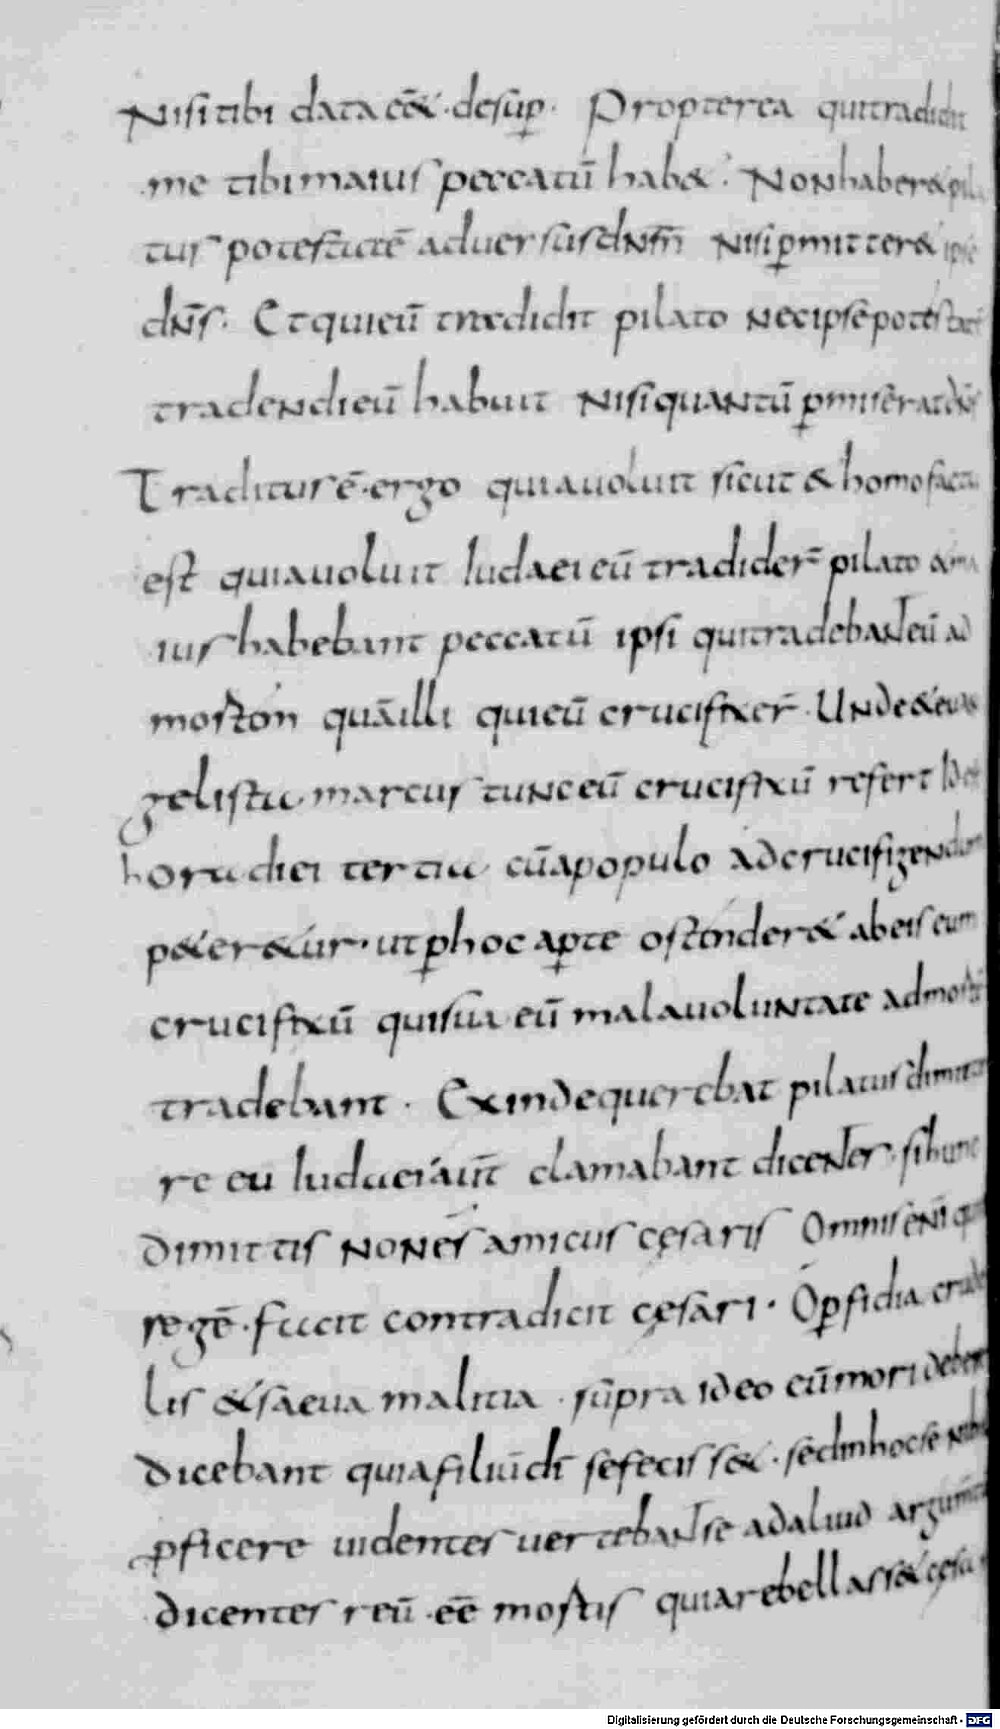 Nisi tibi data eēt · desup̱ · Propterea qui tradidit
me tibi maius peccatū habet · Non haberet pila
tus potestatē aduersus dn̄m nisi p̱mitteret ipse
dn̄s · Et qui eū tradidit pilato nec ipse potestatē
tradendi eū habuit nisi quantū p̱miserat dn̄s
Traditus ē · ergo quia uoluit sicut & homo factus
est quia uoluit Iudaei eū tradider̄ pilato & ma
ius habebant peccatū ipsi qui tradebant eū ad
mortem quā illi qui eū crucifixer̄ · Unde & euan
gelista marcus tunc eū crucifixū refert id est
hora diei tertia cū a populo ad crucifigendum
peteretur · ut p̱ hoc ap̱te ostenderet ab eis eum
crucifixū qui sua eū mala uoluntate ad mortē
tradebant · Exinde querebat pilatus dimitte
re eū Iudaei aūt clamabant dicentes · si hunc
dimittis non es amicus cęsaris Omnis enī qui
regē · facit contradicit cęsari · O p̱fidia crude
lis & saeua malitia · sūpra ideo eū mori debere
dicebant quia filiū dī se fecisset · sed in hoc se nihil
p̱ficere uidentes uertebant se ad aliud argum̄tū
dicentes reū · eē mortis quia rebellasset cęsari